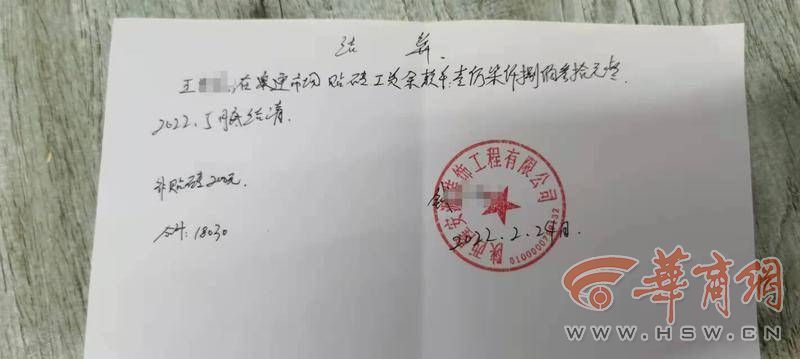 结 算
王 在 市场贴砖工资余款 壹万柒仟捌佰叁拾元整.
2022.5月底结清.
补贴砖200元.
合计:18030
陕西 安 装饰工程有限公司
2022.2.24日.
華商網
WWW.HSW.CN